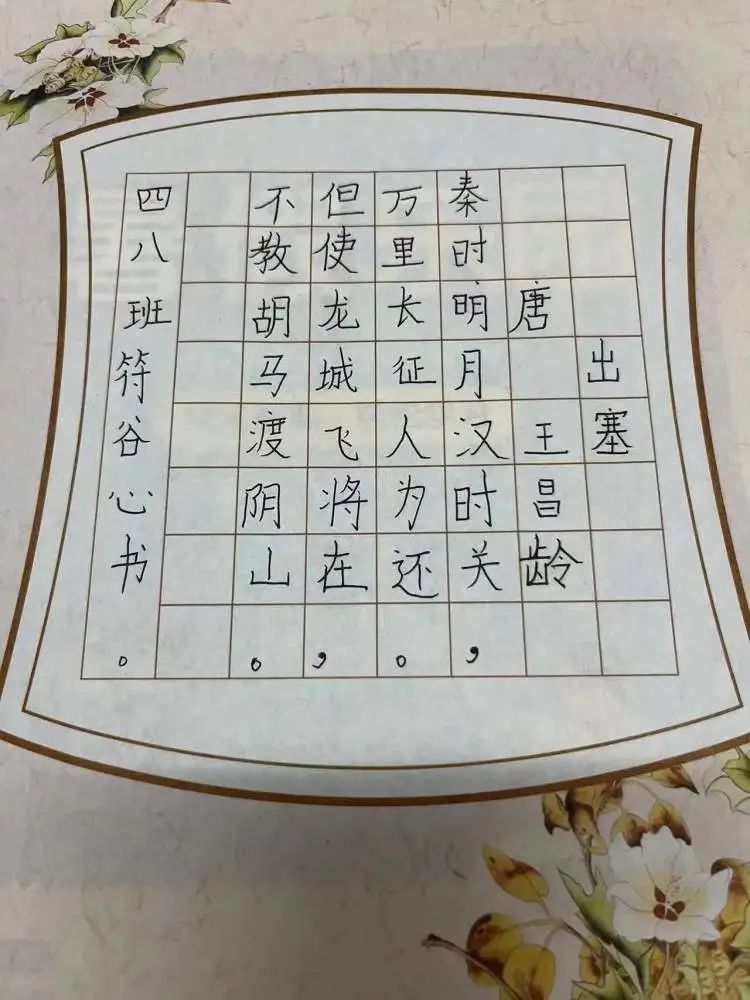 出塞
唐王昌龄
秦时明月汉时关，
万里长征人为还。
但使龙城飞将在，
不教胡马渡阴山。
四八班符谷心书。